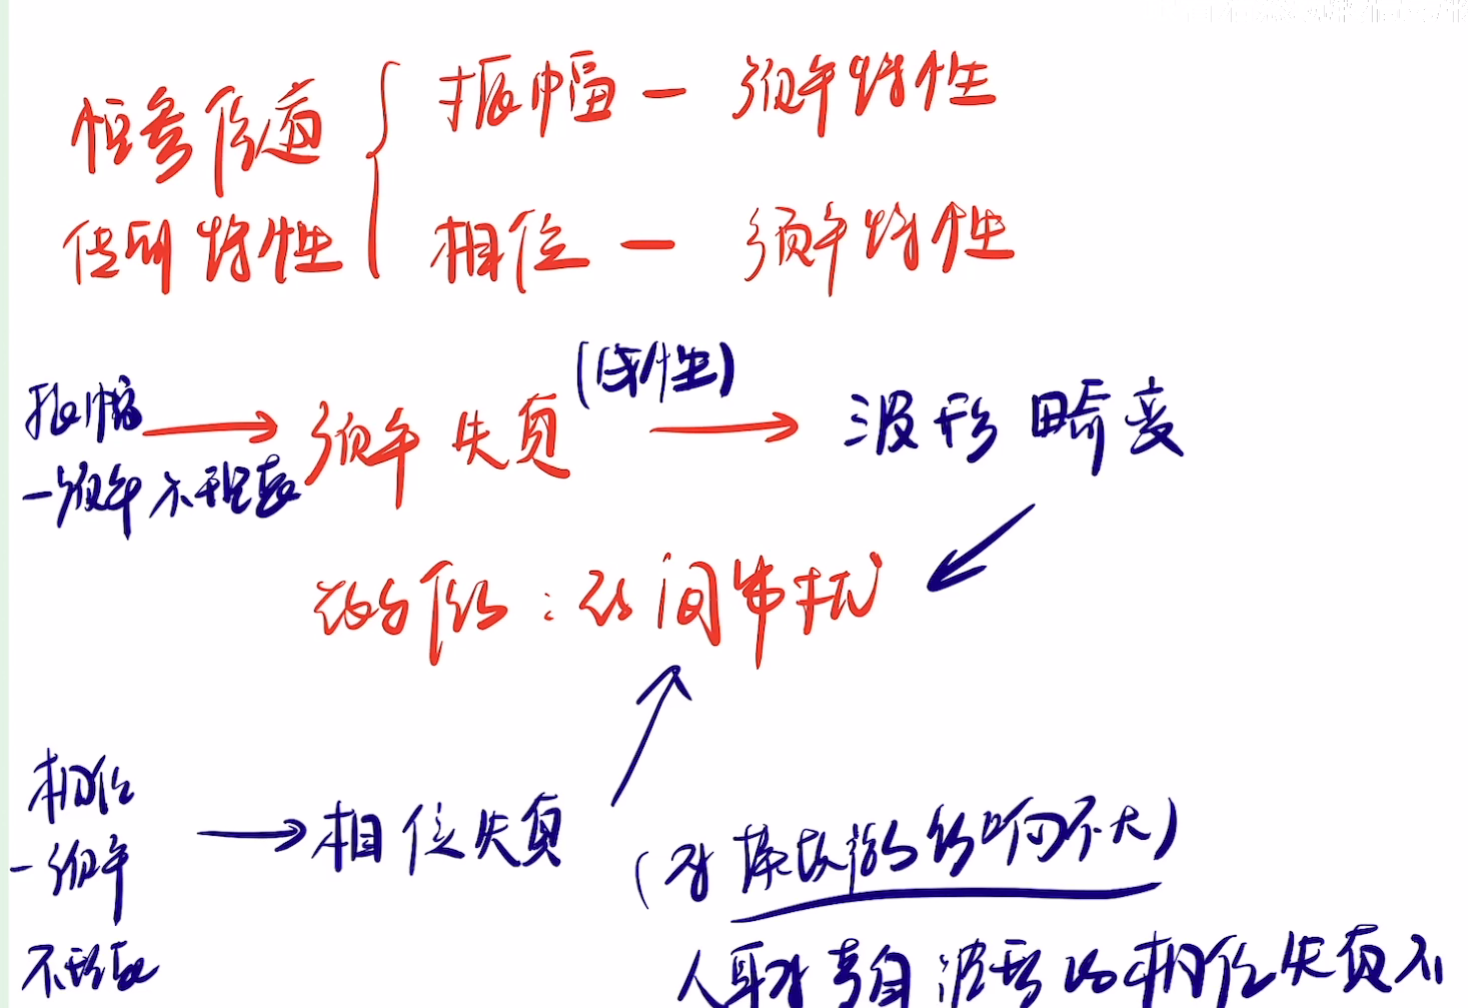 恒参信道
传输特性
振幅 — 频率特性
相位 — 频率特性
振幅
—频率 不理想
频率失真
(线性)
波形畸变
数字信号:码间串扰
相位
—频率
不理想
相位失真
(对模拟的影响不大)
人耳对声音波形的相位失真不